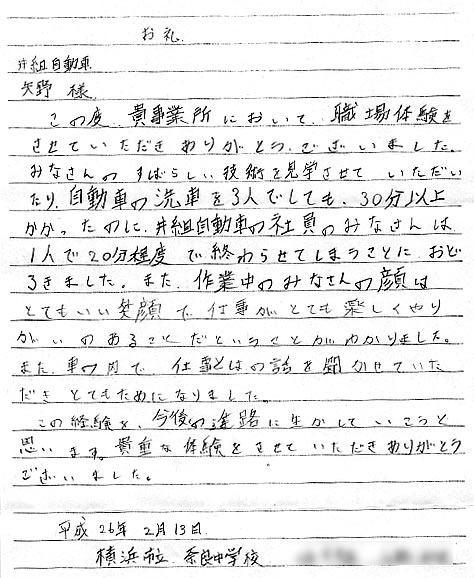 お礼
井組自動車
矢野 様
この度、貴事業所において、職場体験を
させていただきありがとうございました。
みなさんのすばらしい技術を見学させていただい
たり、自動車の洗車を3人でしても、30分以上
かかったのに、井組自動車の社員のみなさんは
1人で20分程度で終わらせてしまうことにおど
ろきました。また、作業中のみなさんの顔は
とてもいい笑顔で、仕事がとても楽しくやり
がいのあることだということがわかりました。
また、車の内で仕事とはの話を聞かせていた
だきとてもためになりました。
この経験を、今後の進路に生かしていこうと
思います。貴重な体験をさせていただきありがとう
ございました。
平成26年 2月13日
横浜市立 奈良中学校